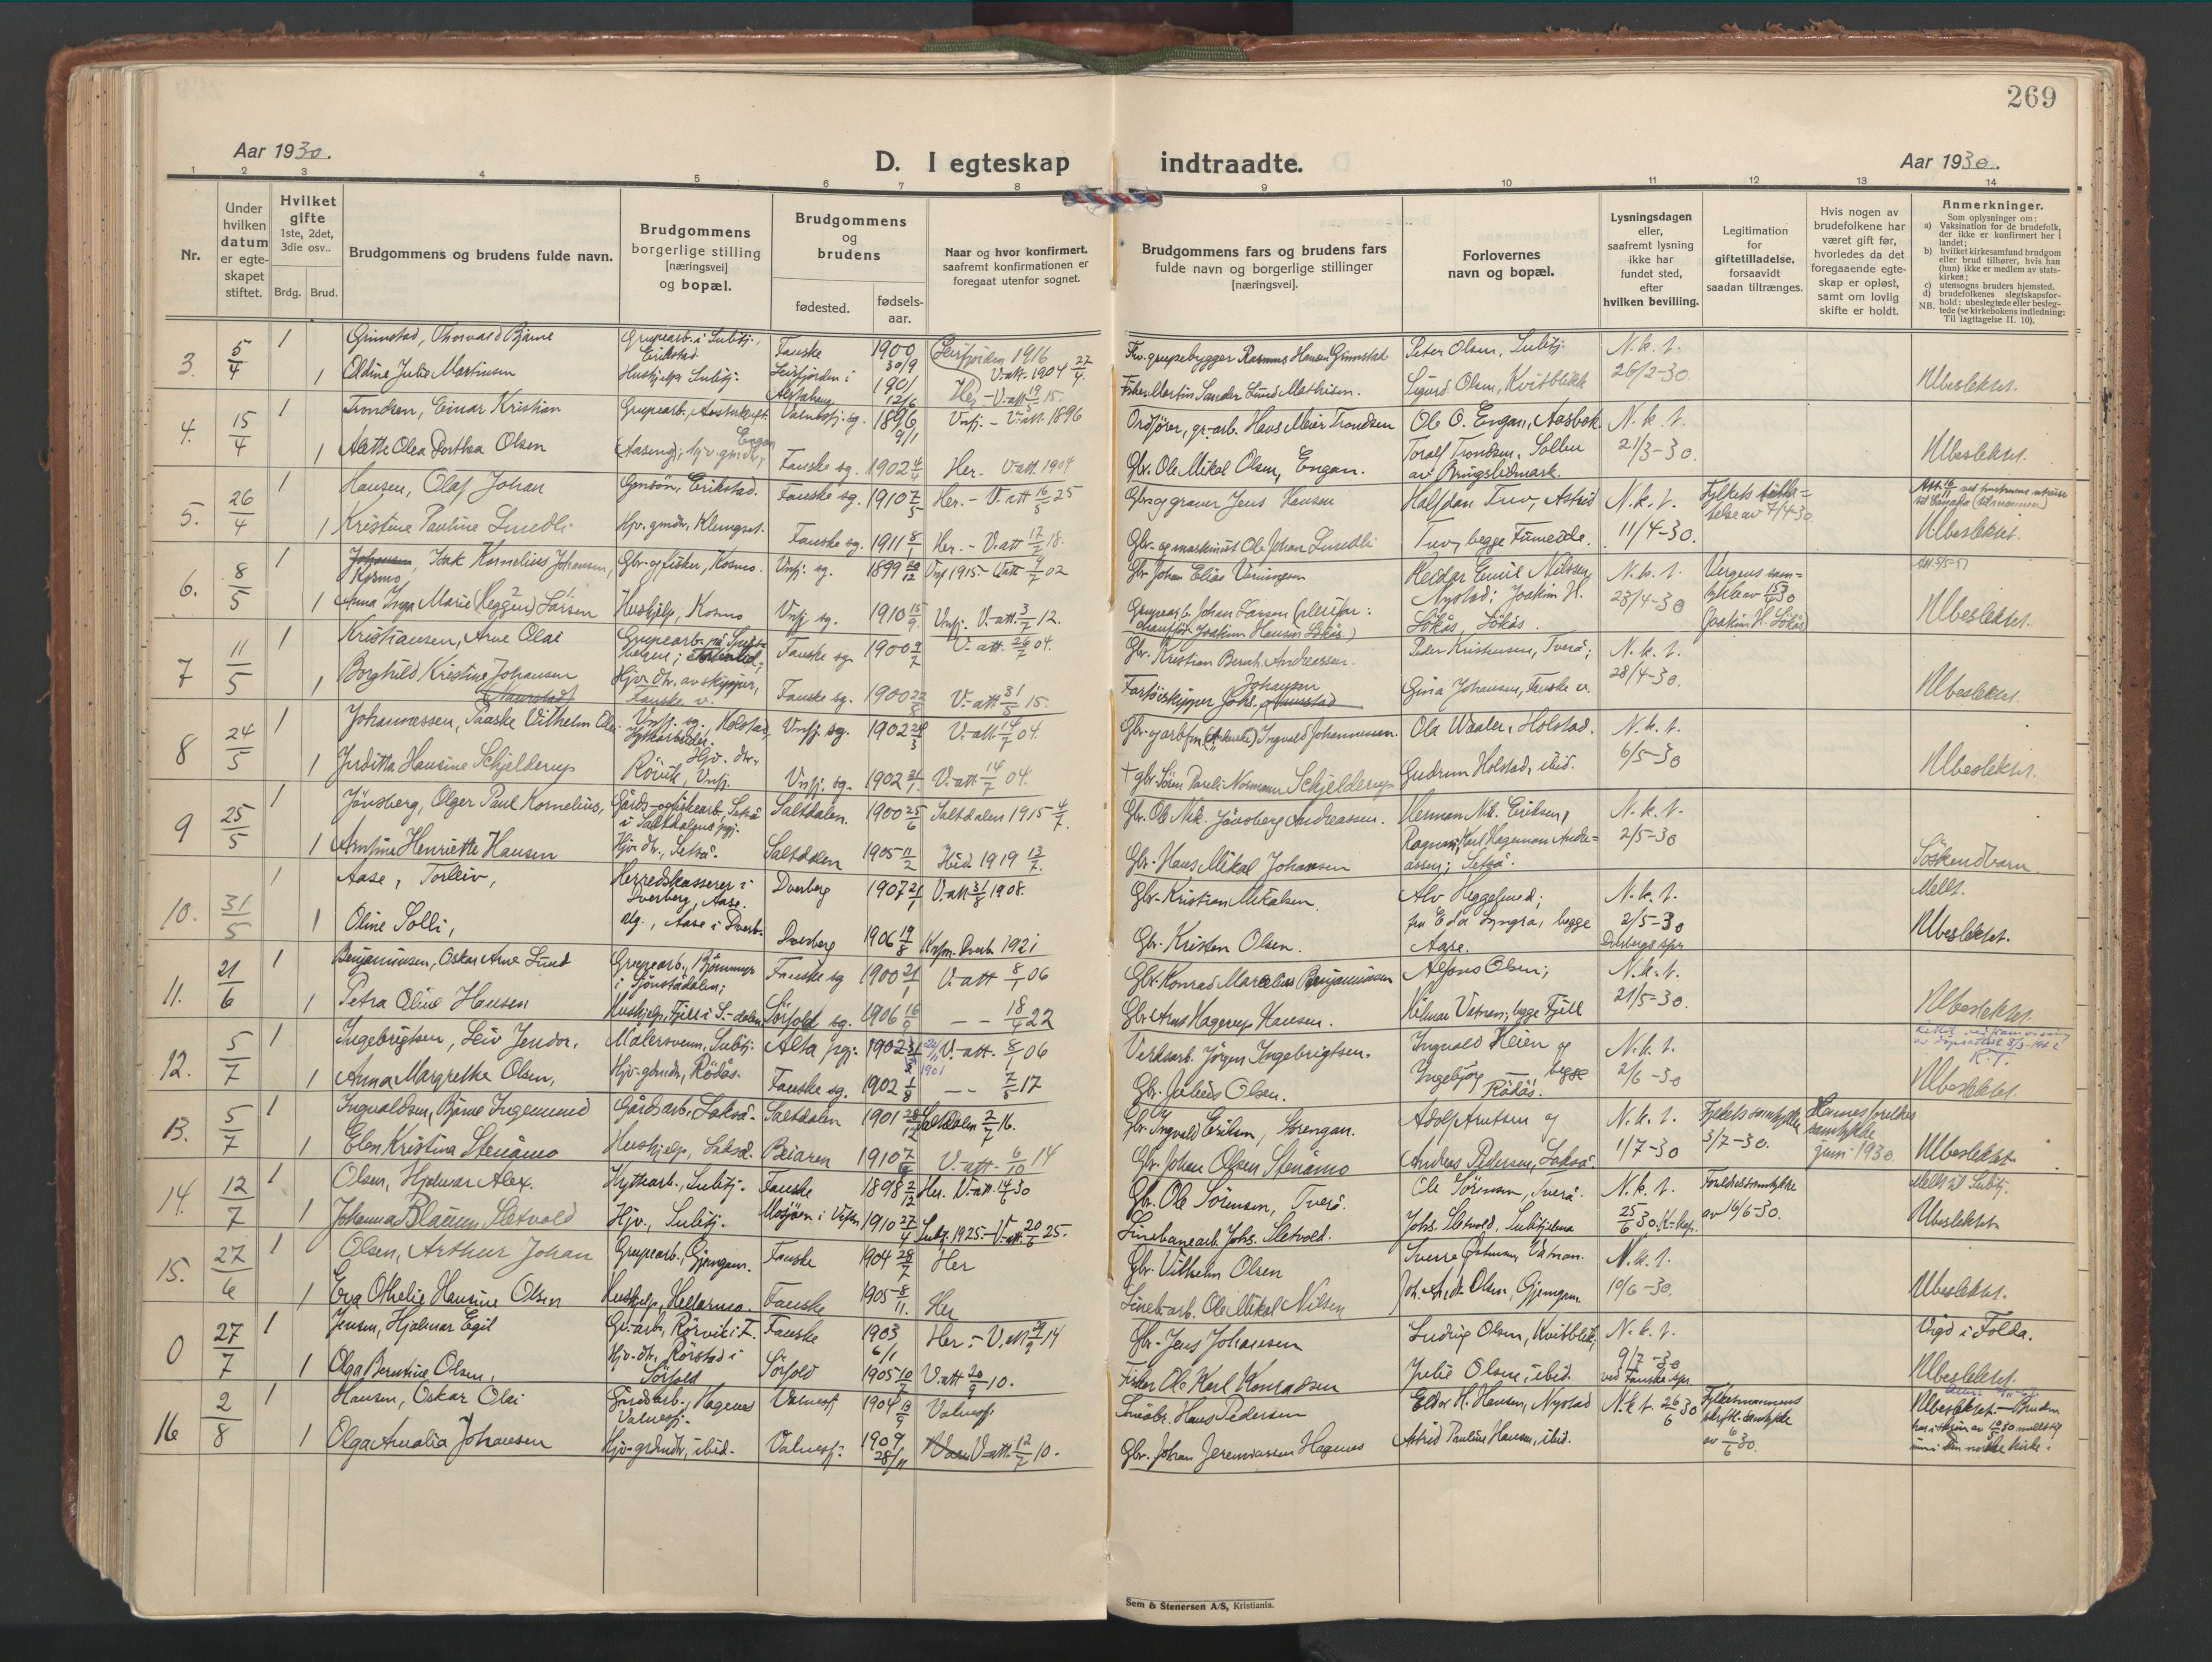 269
Aar 1930.
D. I egteskap indtraadte.
Aar 1930.
1 2 3 4 5 6 7 8 9 10 11 12 13 14
Nr.
Under hvilken datum er egteskapet stiftet.
Hvilket gifte 1ste, 2det, 3die osv..
Brdg. Brud.
Brudgommens og brudens fulde navn.
Brudgommens borgerlige stilling [næringsvei] og bopæl.
Brudgommens og brudens
fødested.
fødselsaar.
Naar og hvor konfirmert, saafremt konfirmationen er foregaat utenfor sognet.
Brudgommens fars og brudens fars fulde navn og borgerlige stillinger [næringsvei].
Forlovernes navn og bopæl.
Lysningsdagen eller, saafremt lysning ikke har fundet sted, efter hvilken bevilling.
Legitimation for giftetilladelse, forsaavidt saadan tiltrænges.
Hvis nogen av brudefolkene har været gift før, hvorledes da det foregaaende egteskap er opløst, samt om lovlig skifte er holdt.
Anmerkninger.
Som oplysninger om:
a) Vaksination for de brudefolk, der ikke er konfirmert her i landet;
b) hvilket kirkesamfund brudgom eller brud tilhører, hvis han (hun) ikke er medlem av statskirken;
c) utensogns bruders hjemsted.
d) brudefolkenes slegtskapsforhold: ubeslegtede eller beslegtede (se kirkebokens indledning: Til iagttagelse II. 10).
NB.
3. 5/4 1 Grimstad, Thorvald Bjarne Grupearb. i Sulitj., Erikstad Fauske 1900 30/9 Leirfjorden 1916 V.att. 1904 27/4 Fhv. grupebygger Rasmus Hansen Grimstad Peter Olsen, Sulitj. N.k.t.
1 Oldine Julie Martinsen Hushjelp Sulitj. Leirfjorden i Alstahaug 1901 12/6 Her - V.att 19/ 15. Fisker Martin Sander Lund Mathisen. Sigurd Olsen, Kvitblikk 26/2-30. Ubeslektet.
4. 15/4 1 Trondsen, Einar Kristian Grupearb., Valnesfj. sg. 1896 9/1 Vnfj. - V.att. 1896 Ordfører, gr.arb. Hans Meier Trondsen Ole O. Engan, Aasbak. N.k.t.
1 Alette Olea Dorthea Olsen Engan Fauske sg. 1902 4/4 Her. V.att. 1904 Gbr. Ole Mikal Olsen, Engan. Toralf Trondsen, 21/3-30. Ubeslektet.
5. 26/4 1 Hansen, Olaf Johan Gmsøn, Erikstad. Fauske sg. 1910 7/5 Her. - V.att 16/5 25 Gbr. og graver Jens Hansen Halfdan Tuv, Astrid N.k.t. Fylkets
1 Kristine Pauline Lundli Hjv. gmdr., Klungset. Fauske sg. 1911 8/1 Her. - V.att 17/2 18. Gbr. og maskinist Ole Johan Lundli Tuv, begge Fureide. 11/4-30. telse av 7/4-30 Ubeslektet.
6. 8/5 1 Johansen, Isak Kornelius Johansen, Kosmo Gbr. og fisker, Kosmo. Vnfj. sg. 1899 20/12 Vnfj 1915 - V.att 9/7 02 Gbr. Johan Elias Heidar Emil Nilssen, N.k.t. Vergens sam-
1 Anna Inga Marie (Heggen) Larsen Hushjelp, Kosmo Vnfj. sg. 1910 15/9 Vnfj. V.att. 3/7 12. Grupearb. Johan Larsen Nystad; Joakim H. Løkås, Løkås. 23/4-30 tykke av 15/4 30 (Joakim H. Løkås) Ubeslektet.
7 11/5 1 Kristiansen, Arne Olai Grupearb. på Fauske sg. 1900 V.att. 26/7 04. Gbr. Kristian Bernh. Andreassen. Peder Kristensen, Tverå; N.k.t.
1 Borghild Kristine Johansen Hjv. dtr. av skipper, Fauske v. Fauske sg. 1900 V.att 31/5 15. Fartøiskipper Johs. Johansen Gina Johansen, Fauske v. 28/4-30. Ubeslektet.
8 24/5 1 Johannessen, Paaske Vilhelm Vnfj. sg., Holstad, Vnfj. sg. 1902 V.att. 14/7 04. Gbr. og arbfm. Ingvald Johannessen. Ola Waaler, Holstad. N.k.t.
1 Juditta Hansine Schjelderup Hjv. dtr. Røvik, Vnfj. Vnfj. sg. 1902 V.att 14/7 04. + gbr. Søren Pareli Normann Schjelderup Gudrun Holstad, ibid. 6/5-30 Ubeslektet.
9 25/5 1 Jønsberg, Olger Paul Kornelius, Gårds- og fiskearb., Setså i Saltdalens pgj. Saltdalen. 1900 25/6 Saltdalen 1915 4/7. Gbr. Ole Nik. Jønsberg Andreassen. Herman Nik. Eriksen, N.k.t.
1 Arntine Henriette Hansen Hjv. dtr., Setså. Saltdalen 1905 11/2 Ibid. 1919 13/7. Gbr. Hans Mikal Johansen Ragnar Karl Hageman Andreassen; Setså. 2/5-30 Søskendbarn.
10. 31/5 1 Aase, Torleiv, Herredskasserer i Dverberg, Aase. Dverberg 1907 21/1 V.att 31/8 1908. Gbr. Kristian Mikalsen. Alv Heggelund; N.k.t. Mellt.
1 Oline Solli, Ug., Aase i Dverb. Dverberg 1906 19/8 Knfm. Dverb. 1921 Gbr. Kristen Olsen. fru Eda Lyngra, begge Aase. 2/5-30 Dverbergs spr Ubeslektet.
11. 21/6 1 Benjaminsen, Oskar Arne Lund Grupearb., Bjørnmyr i Sjønstådalen; Fauske sg 1900 21/1 V.att 8/1 06 Gbr. Konrad Marcelius Benjaminsen Alfons Olsen; N.k.t.
1 Petra Oline Hansen Hushjelp, Fjell i S.-dalen Sørfold sg. 1906 16/9 — — 18/4 22 Gbr. Arnt Hagerup Hansen. Hilmar Vatnan, begge Fjell 21/5-30. Ubeslektet
12. 5/7 1 Ingebrigtsen, Leiv Jendor, Malersvenn, Sulitj. Alta pgj. 1902 V.att. 8/1 06 Verksarb. Jørgen Ingebrigtsen. Ingvald Heien og N.k.t. R.T.
1 Anna Margrethe Olsen, Hjv. gbrdtr., Rødås. Fauske sg. 1902 1/8 — — 7/5 17 Gbr. Julius Olsen. Ingebjørg — begge Rødås. 2/6-30 Ubeslektet.
13. 5/7 1 Ingvaldsen, Bjarne Ingemund Gårdsarb., Lakså. Saltdalen 1901 28/12 Saltdalen 2/7 16. Gbr. Ingvald Eriksen, Storengan. Adolf Arntsen og N.k.t. Fylkets samtykke Hennes foreldres samtykke
1 Elen Kristina Stenåmo Hushjelp, Lakså. Beiaren 1910 7/6 V.-att. 6/10 14 Gbr. Johan Olsen Stenåmo Andreas Pedersen, Lakså. 1/7-30 3/7-30. juni 1930. Ubeslektet
14. 12/7 1 Olsen, Hjalmar Alex. Hyttearb., Sulitj. Fauske 1898 2/12 Her. V.att. 14/6 30 Gbr. Ole Sørensen, Tverå. Ole Sørensen, Tverå. N.k.t. Foreldresamtykke Mellt til Sulitj.
1 Johanna Blaum Sletvold Hjv., Sulitj. Mosjøen i Vefsn. 1910 27/4 Sulitj. 1925. - V.att. 20/6 25. Linebanearb. Johs. Sletvold. Johs. Sletvold, Sulitjelma 25/6 30. K-kap. av 16/6-30. Ubeslektet
15. 27/6 1 Olsen, Arthur Johan Grupearb., Gjemgam. Fauske 1904 28/7 Her Gbr. Vilhelm Olsen Sverre Østmann, Vatnan. N.k.t.
1 Eva Othelie Hansine Olsen Hushjelp, Hellarmo. Fauske 1905 8/11. Her Lineb.arb. Ole Mikal Nilsen Joh. Arnt Olsen, Gjemgam. 10/6-30. Ubeslektet.
0 27/7 1 Jensen, Hjalmar Egil Gr.arb., Rørvik i F. Fauske 1903 6/1 Her. - V.att. 14 Gbr. Jens Johansen Ludvig Olsen, Kvitblik, N.k.t. Vigd i Folda.
1 Olga Berntine Olsen, Hjv. dtr., Rørstad i Sørfold Sørfold 1905 10/7 V.att 20/9 10. Fisker Ole Karl Konradsen Julie Olsen, ibid. 9/7-30 ved Fauske spr. Ubeslektet.
16 2/8 1 Hansen, Oskar Olai Gårdsarb., Hagenes Valnesfj. Valnesfj 1904 Valnesfj. Småbr. Hans Pedersen Eldor H. Hansen, Nystad N.k.t. 26/6 30 Fylkesmannens skriftl. samtykke av 6/6 30. Ubeslektet. - Bruden
1 Olga Amalia Johansen Hjv. grdmdtr., ibid. Valnesfj. 1909 28/11 V.att. 12/7 10. Gbr. Johan Jeremiassen Hagenes Astrid Pauline Hansen, ibid. inn i den norske kirke.
Sem & Stenersen A/S, Kristiania.